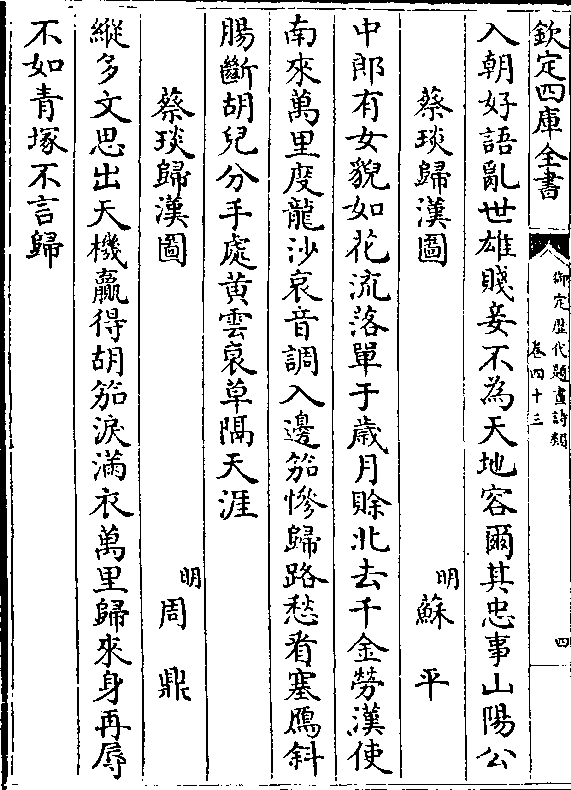 欽定四庫全書
御定歷代題畫詩類
卷四十三
四
入朝好語亂世雄賤妾不為天地容爾其忠事山陽公
蔡琰歸漢圖
明蘇平
中郎有女貌如花流落單于歲月賒北去千金勞漢使
南來萬里度龍沙哀音調入邊笳慘歸路愁看塞鴈斜
腸斷胡兒分手處黄雲衰草隔天涯
蔡琰歸漢圖
明周鼎
縱多文思出天機贏得胡笳淚滿衣萬里歸來身再辱
不如青塚不言歸